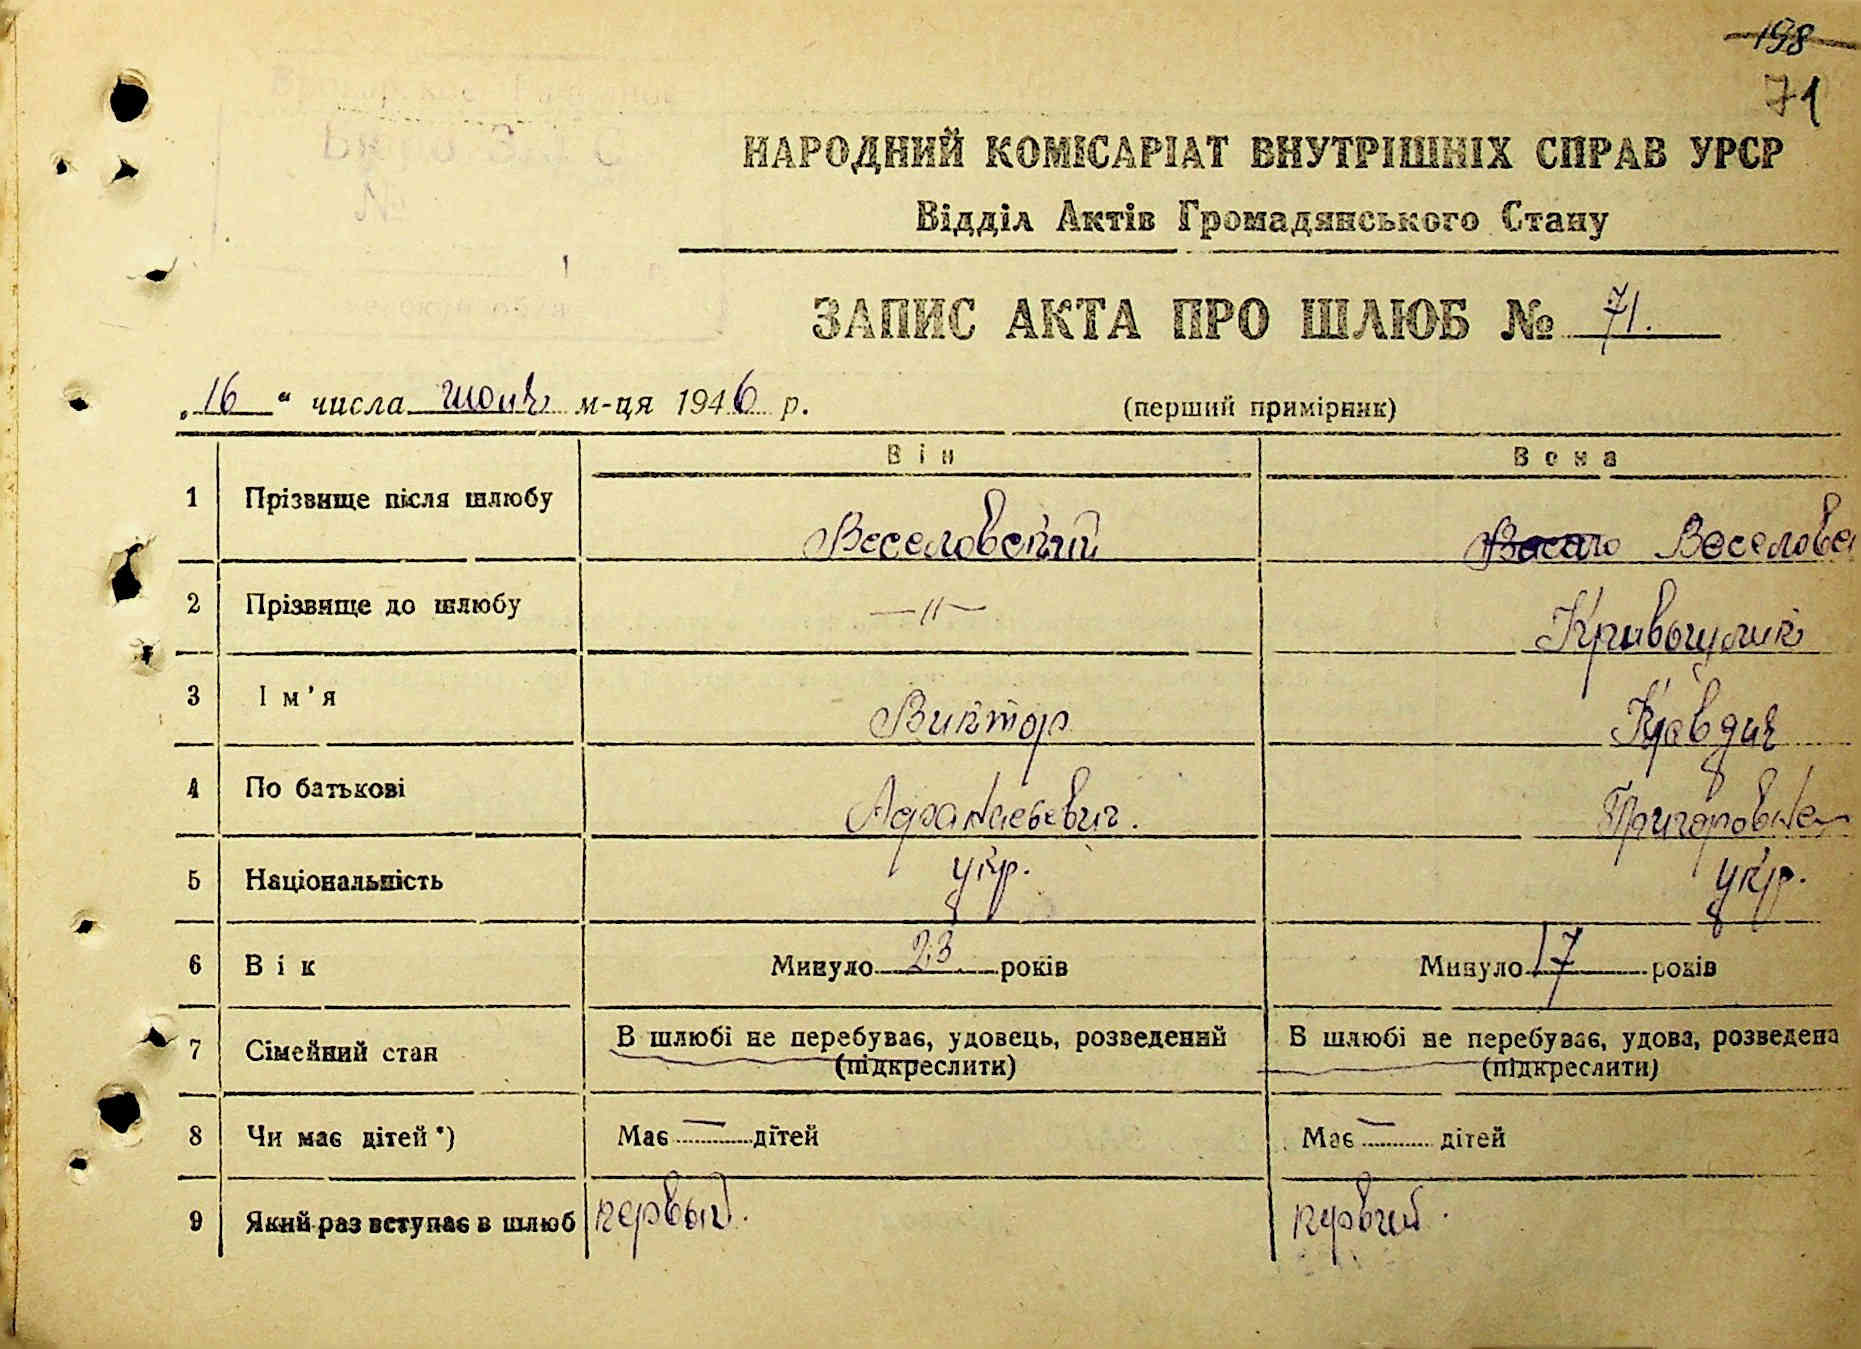 198
71
НАРОДНИЙ КОМІСАРІАТ ВНУТРІШНІХ СПРАВ УРСР
Відділ Актів Громадянського Стану
ЗАПИС АКТА ПРО ШЛЮБ № 71.
„16“ числа м-ця 1946 р. (перший примірник)
Він Вона
1 Прізвище після шлюбу Веселовский Веселовс
2 Прізвище до шлюбу —〃—
3 Ім'я Виктор Клавдия
4 По батькові Афанасьевич. Григоровна
5 Національність укр. укр.
6 Вік Минуло 23 років Минуло 17 років
7 Сімейний стан В шлюбі не перебуває, удовець, розведений (підкреслити) В шлюбі не перебуває, удова, розведена (підкреслити)
8 Чи має дітей*) Має — дітей Має — дітей
9 Який раз вступає в шлюб первый. первый.